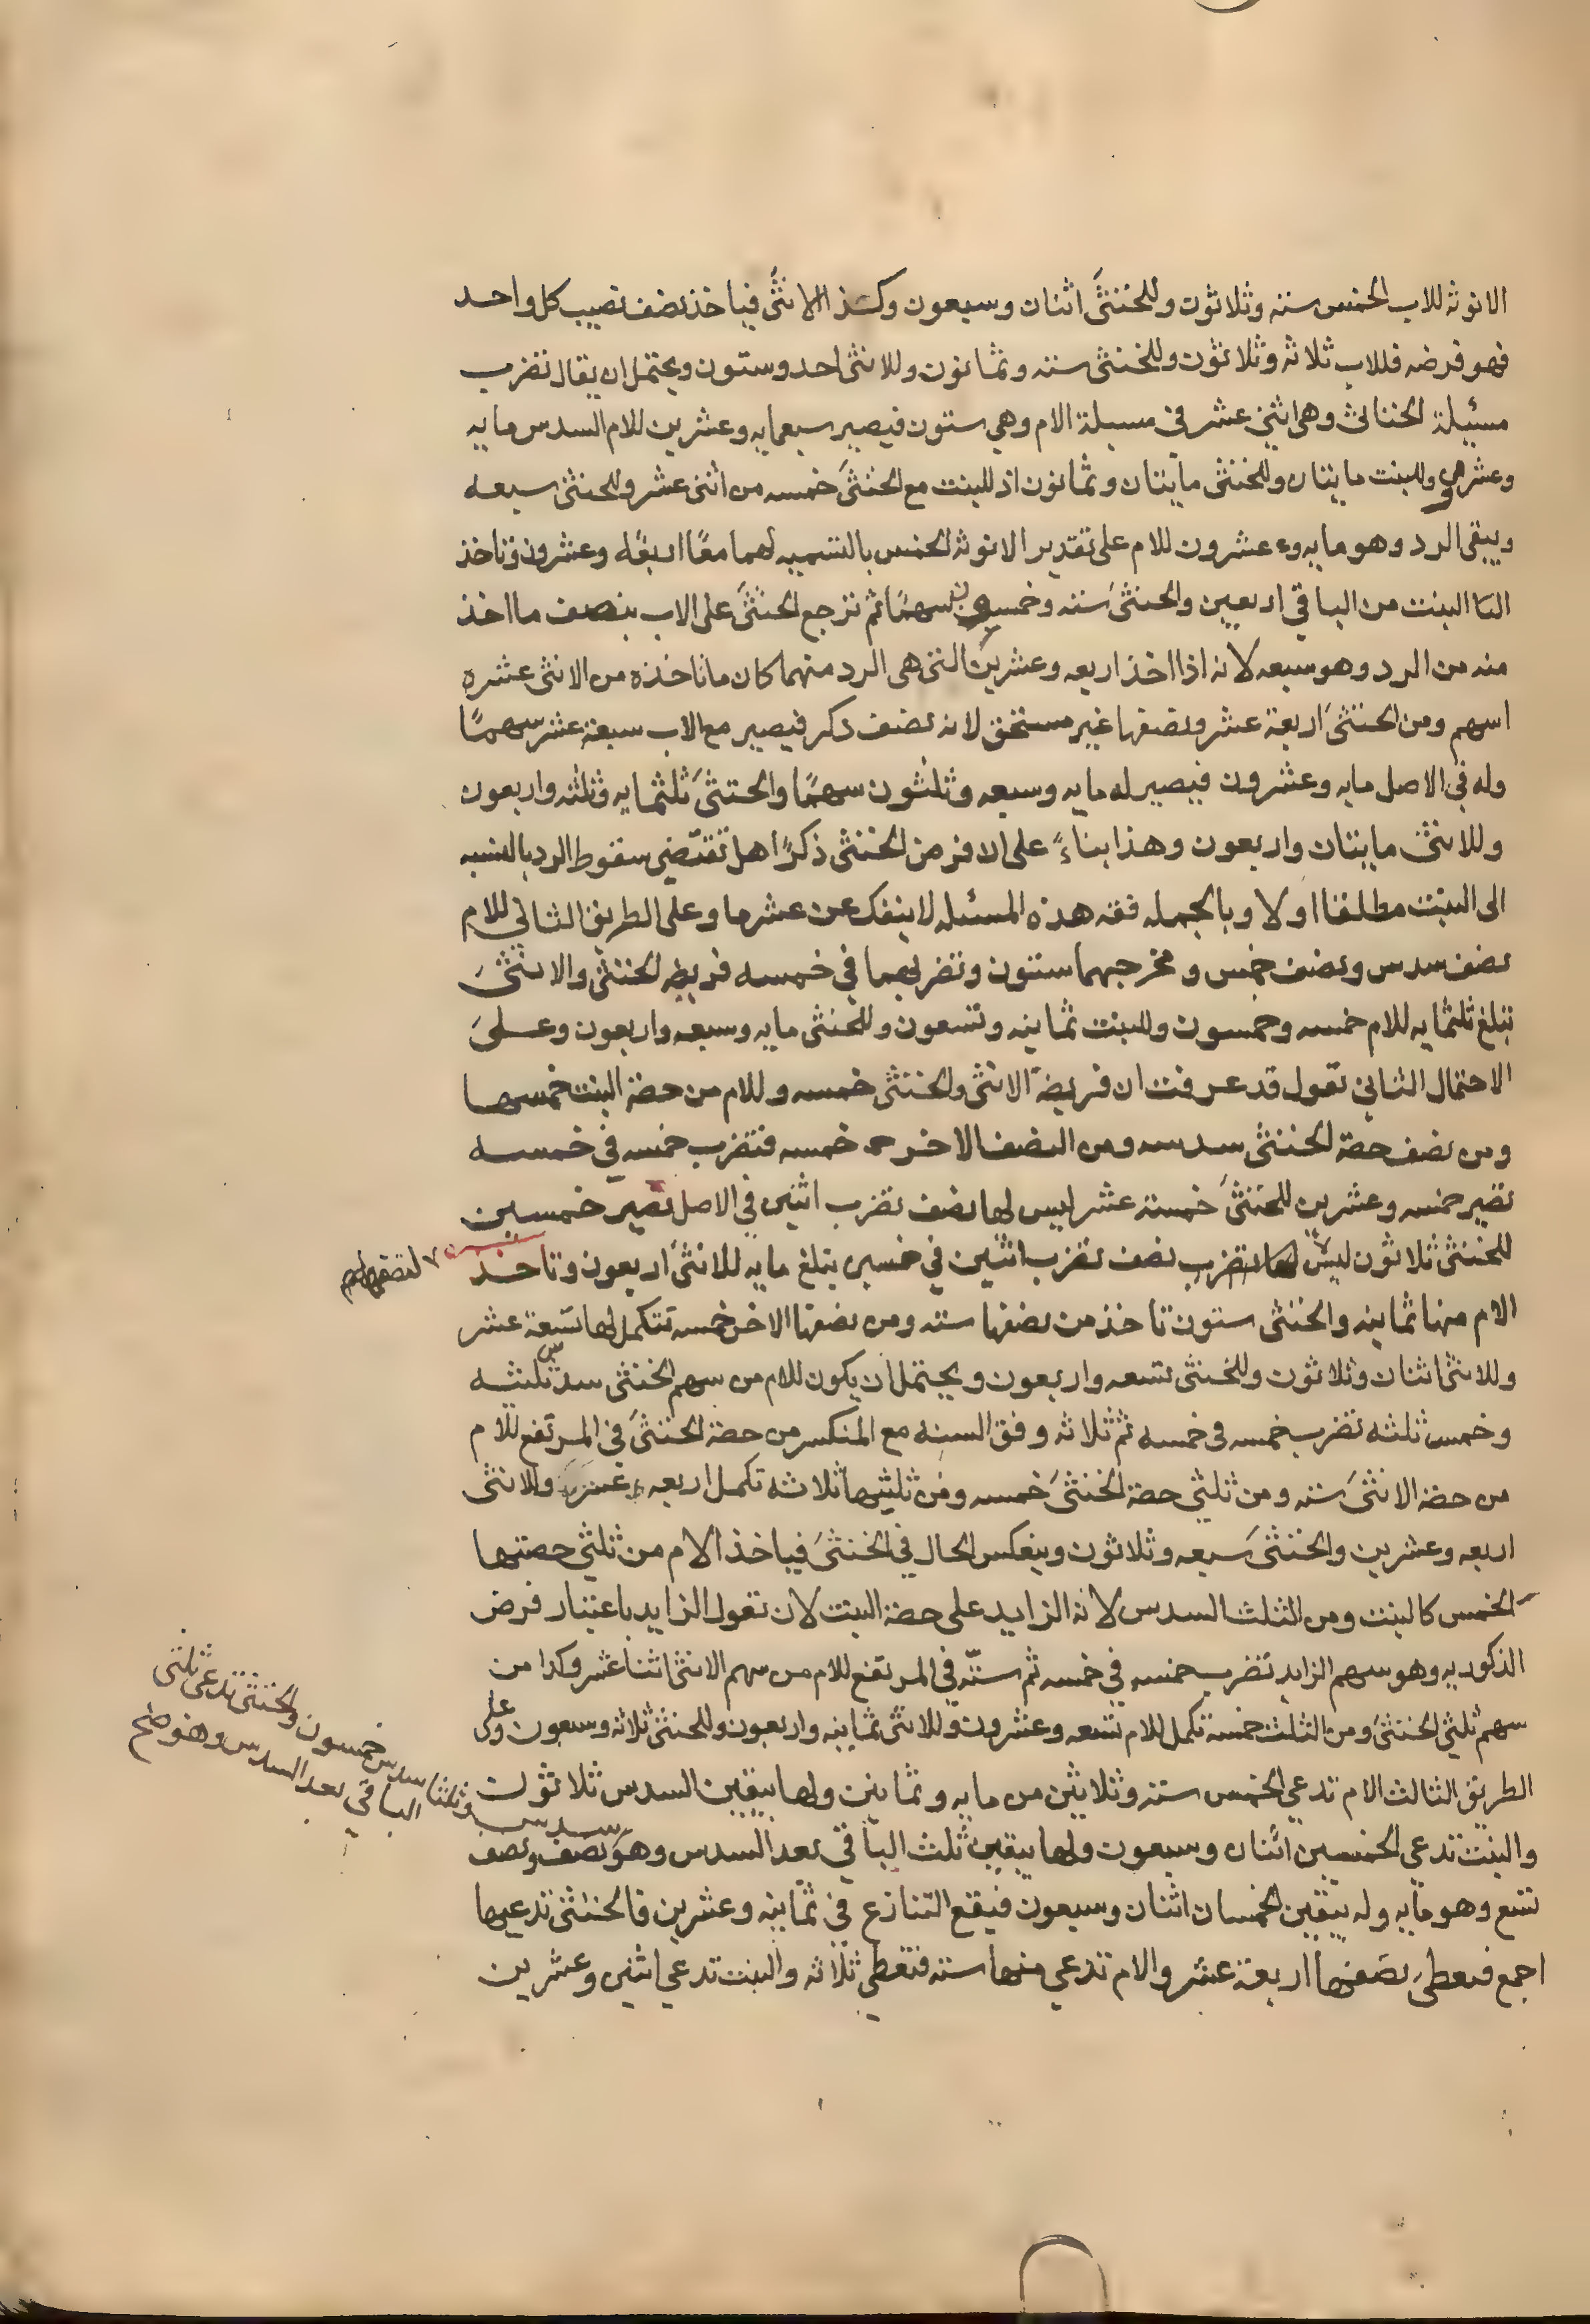 الانوثه للاب الخمس سته وثلاثون وللخنثى اثنان وسبعون وكذا الانثى فياخذ نصف نصيب كل واحد
فهو فرضه فللاب ثلاثه وثلاثون وللخنثى سته وثمانون وللانثى احد وستون ويحتمل ان يقال تضرب
مسئلة الخناثى وهي اثنى عشر في مسيلة الام وهي ستون فيصير سبعمايه وعشرين للام السدس مايه
وعشرون وللبنت مايتان وللخنثى مايتان وثمانون اذ للبنت مع الخنثى خمسه من اثنى عشر وللخنثى سبعه
ويبقى الرد وهو مايه وعشرون للام على تقدير الانوثه الخمس بالتسميه لهما معًا اربعه وعشرون وتاخذ
البنت من الباقي اربعين والخنثى سته وخمسين سهمًا ثم ترجع الخنثى على الاب بنصف ما اخذ
منه من الرد وهو سبعه لانه اذا اخذ اربعه وعشرين التى هى الرد منهما كان ما تاخذه من الانثى عشره
اسهم ومن الخنثى اربعة عشر ونصفها غير مستحق لانه نصف ذكر فيصير مع الاب سبعة عشر سهمًا
وله في الاصل مايه وعشرون فيصير له مايه وسبعه وثلثون سهمًا والخنثى ثلثمايه وثلثه واربعون
وللانثى مايتان واربعون وهذا بناءً على ان فرض الخنثى ذكرًا هل تقتضى سقوط الرد بالنسبه
الى البنت مطلقا اولا وبالجمله فقه هذه المسئله لا ينفك عن عشرما وعلى الطريق الثاني للام
نصف سدس ونصف خمس ومخرجهما ستون وتضربهما في خمسه فريضه الخنثى والانثى
تبلغ ثلثمايه للام خمسه وخمسون وللبنت ثمانيه وتسعون وللخنثى مايه وسبعه واربعون وعلى
الاحتمال الثاني نقول قد عرفت ان فريضة الانثى والخنثى خمسه وللام من حصة البنت خمسها
ومن نصف حصة الخنثى سدسه ومن النصف الاخر خمسه فتضرب خمسه في خمسه
تصير خمسه وعشرين للخنثى خمسة عشر ليس لها نصف تضرب اثنين في الاصل تصير خمسين
للخنثى ثلاثون ليس نصف تضرب اثنين في خمسين يبلغ مايه للانثى اربعون وتاخذ
الام منها ثمانيه والخنثى ستون تاخذ من نصفها سته ومن نصفها الاخر خمسه تتكمل لها تسعة عشر
وللانثى اثنان وثلاثون وللخنثى تسعه واربعون ويحتمل ان يكون للام من سهم الخنثى سدس ثلثيه
وخمس ثلثه تضرب خمسه في خمسه ثم ثلاثه وفق السته مع المنكسر من حصة الخنثى في المرتفع للام
من حصة الانثى سته ومن ثلثي حصة الخنثى خمسه ومن ثلثها ثلاثه تكمل اربعه عشر وللانثى
اربعه وعشرين والخنثى سبعه وثلاثون وينعكس الحال في الخنثى فياخذ الام من ثلثي حصتها
الخمس كالبنت ومن الثلث السدس لانه الزايد على حصة البنت لان نقول الزايد باعتبار فرض
الذكوريه وهو سهم الزايد تضرب خمسه في خمسه ثم ستّه في المرتفع للام من سهم الانثى اثنا عشر وكذا من
سهم ثلثي الخنثى ومن الثلث خمسة تكمل للام تسعه وعشرون وللانثى ثمانيه واربعون وللخنثى ثلاثه وسبعون وعلى
الطريق الثالث الام تدعي الخمس سته وثلاثين من مايه وثمانين ولها بيقين السدس ثلاثون
والبنت تدعي الخمسين اثنان وسبعون ولها بيقين ثلث الباقي بعد السدس وهو نصف ونصف
تسع وهو مايه وله بيقين الخمسان اثنان وسبعون فيقع التنازع في ثمانيه وعشرين فالخنثى تدعيها
اجمع فيعطى نصفها اربعة عشر والام تدعي منها سته فتعطى ثلاثه والبنت تدعي اثنين وعشرين
سدس وثلثا سدس خمسون والخنثى تدعى ثلثى
الباقي بعد السدس وهو